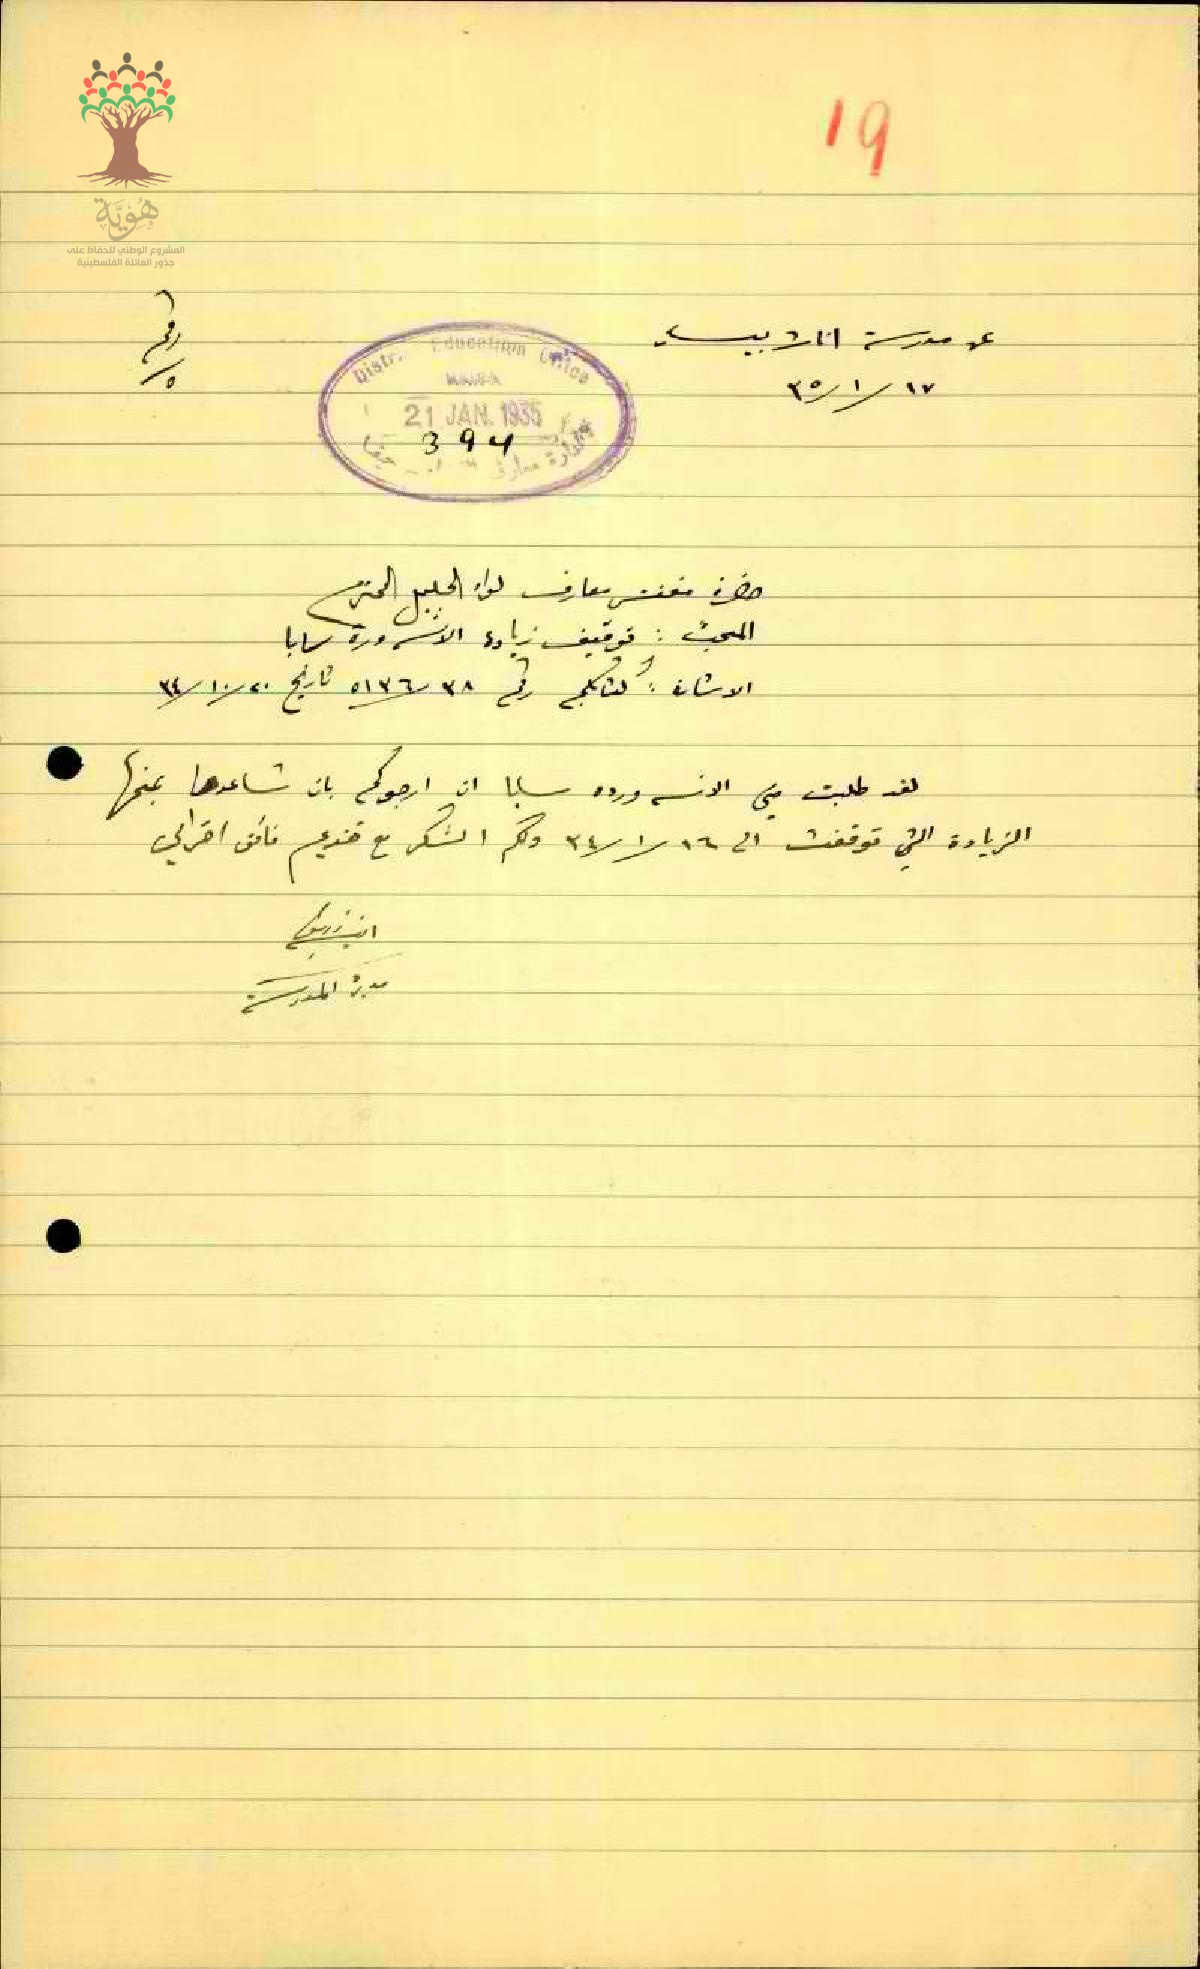 19
هُوِيَّة
المشروع الوطني للحفاظ على
جذور العائلة الفلسطينية
عن مدرسة اناث بيسان
١٧/١/٣٥
رقم
٥
Distr. Education Office
HAIFA
21 JAN. 1935
394
ادارة معارف حيفا
حضرة مفتش معارف لواء الجليل المحترم
المبحث : توقيف زيادة الآنسة وردة سابا
الاشارة : كتابكم رقم ٣٨/٥١٣٦ تاريخ ٢٠/١٠/٣٤
لقد طلبت مني الانسه ورده سابا ان ارجوكم بان تساعدوها بمنحها
الزيادة التي توقفت الى ١٦/١/٣٤ ولكم الشكر مع تقديم فائق احترامي
مديرة المدرسة